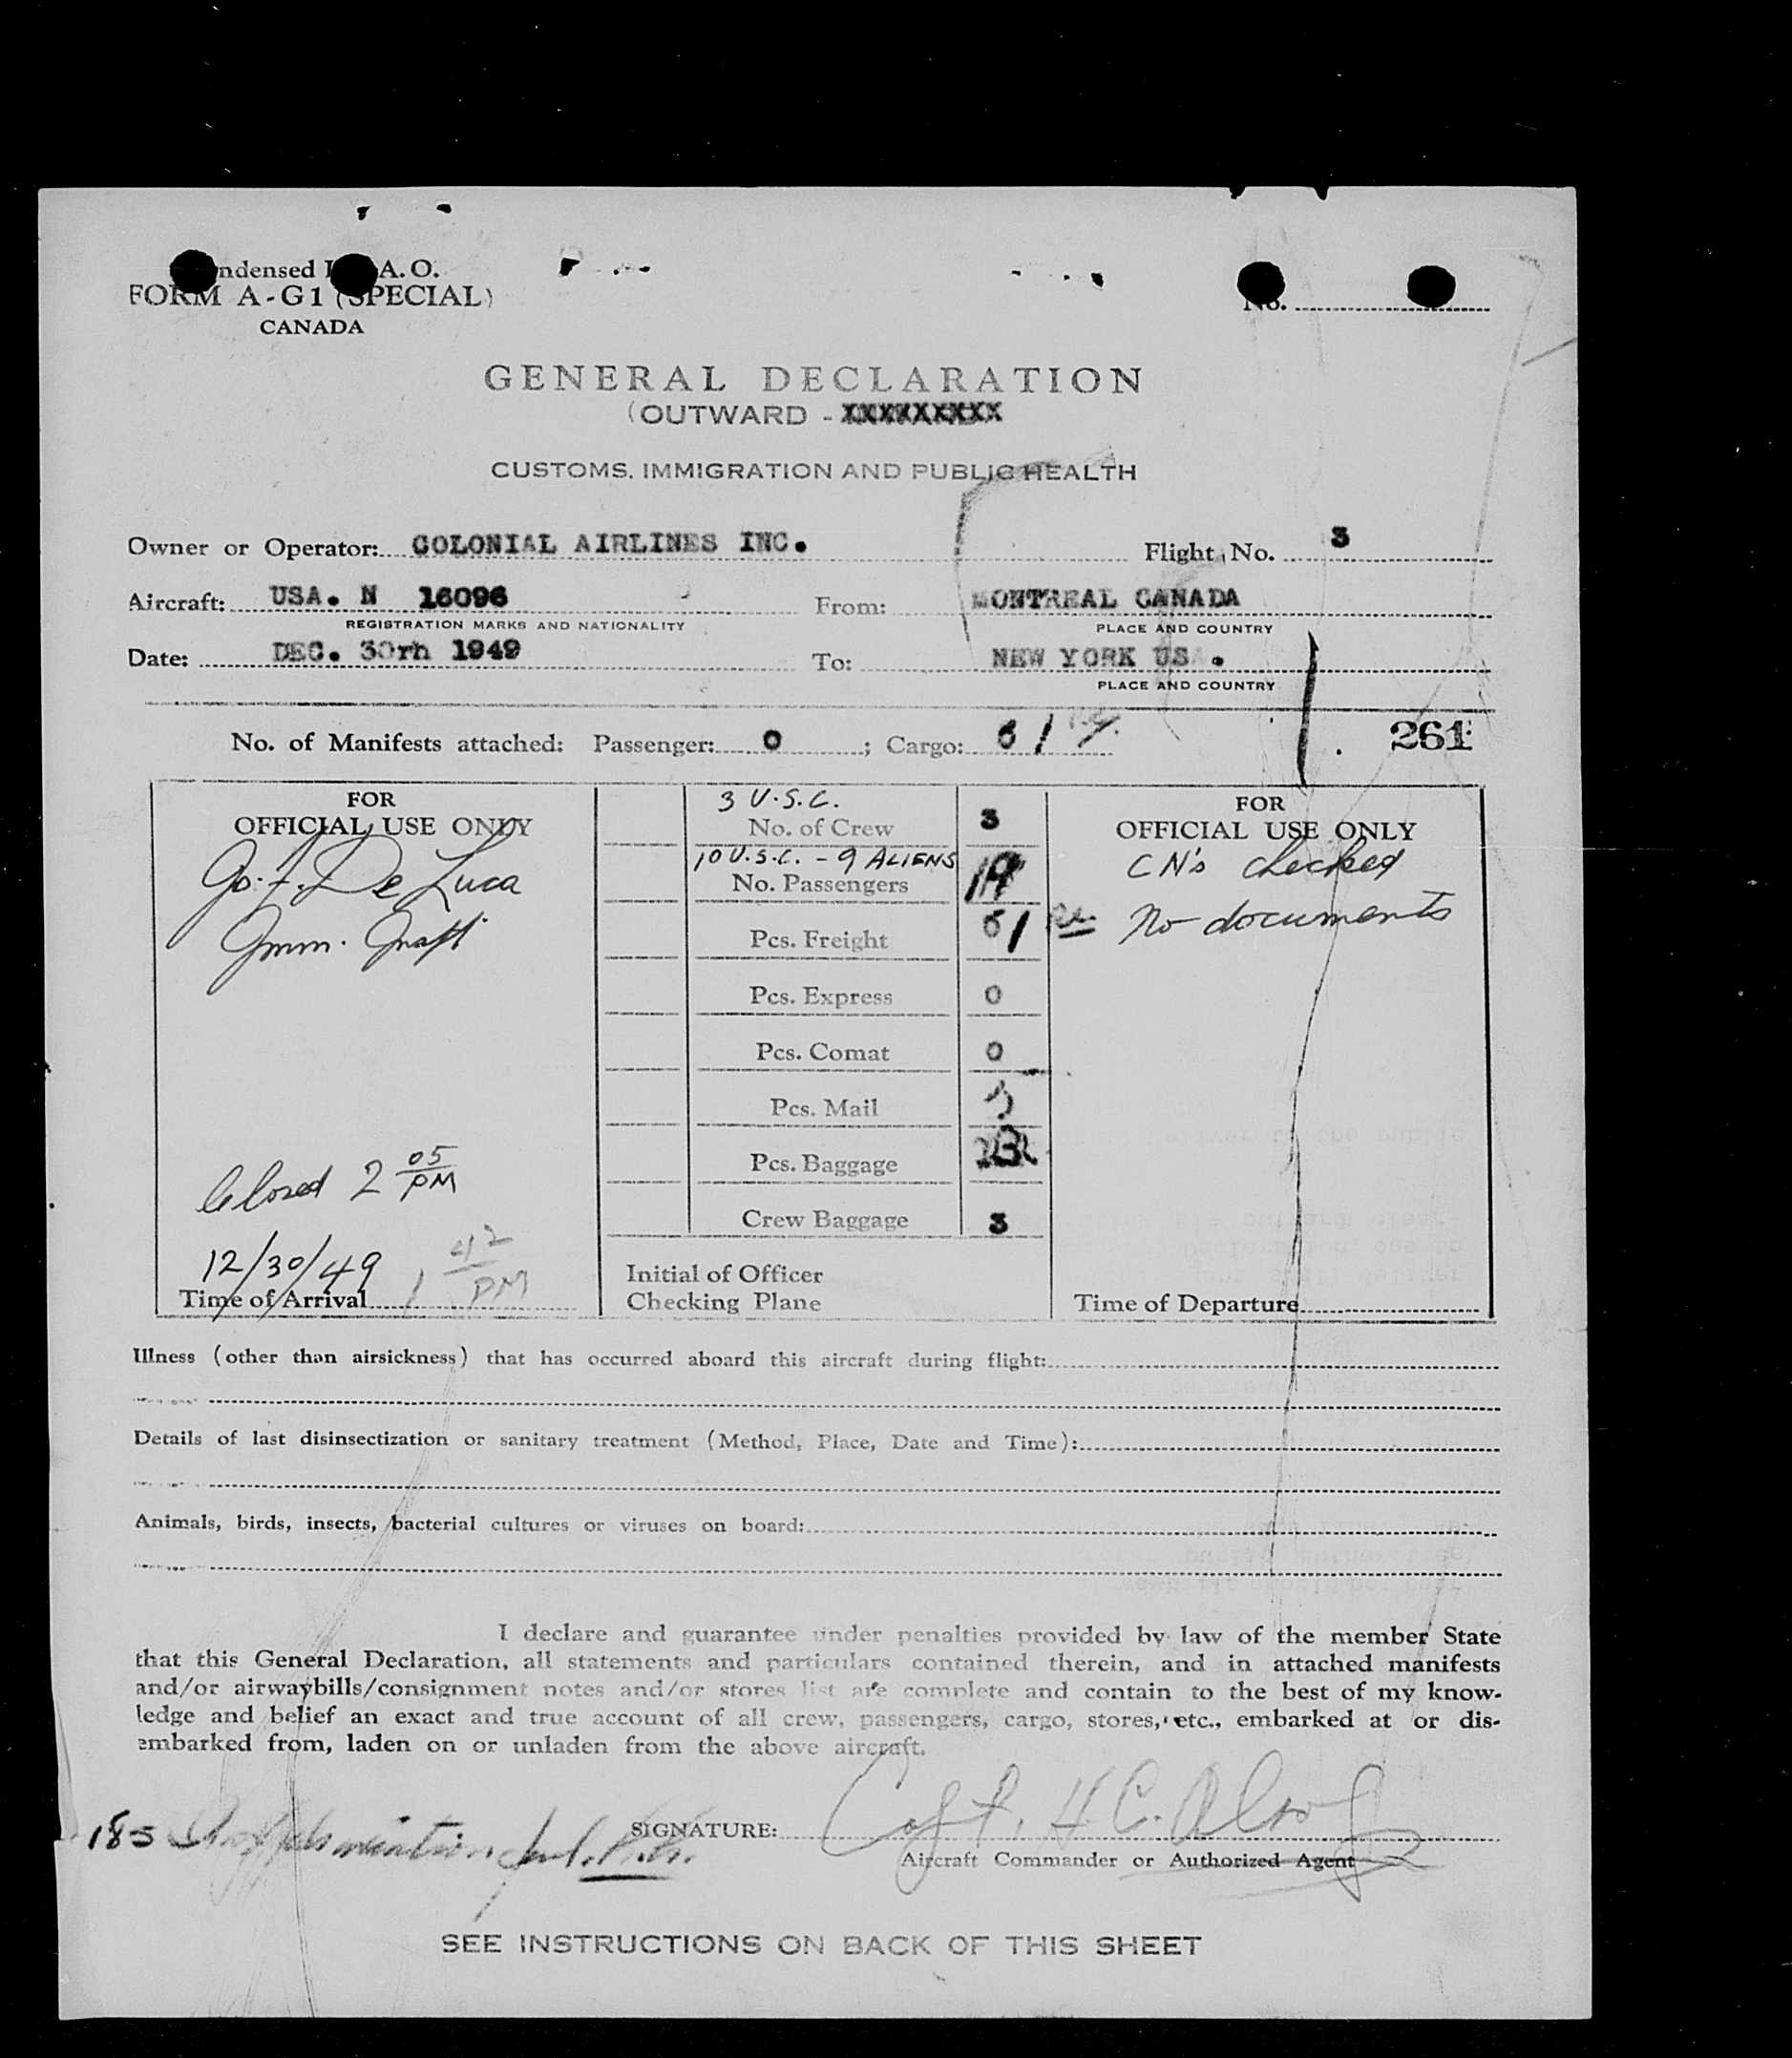 ndensed I A. O.
FORM A-G1 (SPECIAL)
CANADA
No.
GENERAL DECLARATION
(OUTWARD - XXXXXXXXX
CUSTOMS. IMMIGRATION AND PUBLIC HEALTH
Owner or Operator: COLONIAL AIRLINES INC. Flight No. 3
Aircraft: USA. N 16096 From: MONTREAL CANADA
REGISTRATION MARKS AND NATIONALITY PLACE AND COUNTRY
Date: DEC. 30rh 1949 To: NEW YORK US .
PLACE AND COUNTRY
No. of Manifests attached: Passenger: 0 ; Cargo: 1 261
FOR
OFFICIAL USE ONLY
De Luca
Imm. Insp
Closed 2 05 PM
12/30/49 1 42 PM
Time of Arrival
3 U.S.C.
No. of Crew 3
10 U.S.C. - 9 ALIENS
No. Passengers 19
Pcs. Freight 1
Pcs. Express 0
Pcs. Comat 0
Pcs. Mail
Pcs. Baggage
Crew Baggage 3
Initial of Officer
Checking Plane
FOR
OFFICIAL USE ONLY
CN's checked
No documents
Time of Departure
Illness (other than airsickness) that has occurred aboard this aircraft during flight:
Details of last disinsectization or sanitary treatment (Method, Place, Date and Time):
Animals, birds, insects, bacterial cultures or viruses on board:
I declare and guarantee under penalties provided by law of the member State
that this General Declaration, all statements and particulars contained therein, and in attached manifests
and/or airwaybills/consignment notes and/or stores list are complete and contain to the best of my know-
ledge and belief an exact and true account of all crew, passengers, cargo, stores, etc., embarked at or dis-
embarked from, laden on or unladen from the above aircraft.
185
SIGNATURE: Capt. H C.
Aircraft Commander or Authorized Agent
SEE INSTRUCTIONS ON BACK OF THIS SHEET